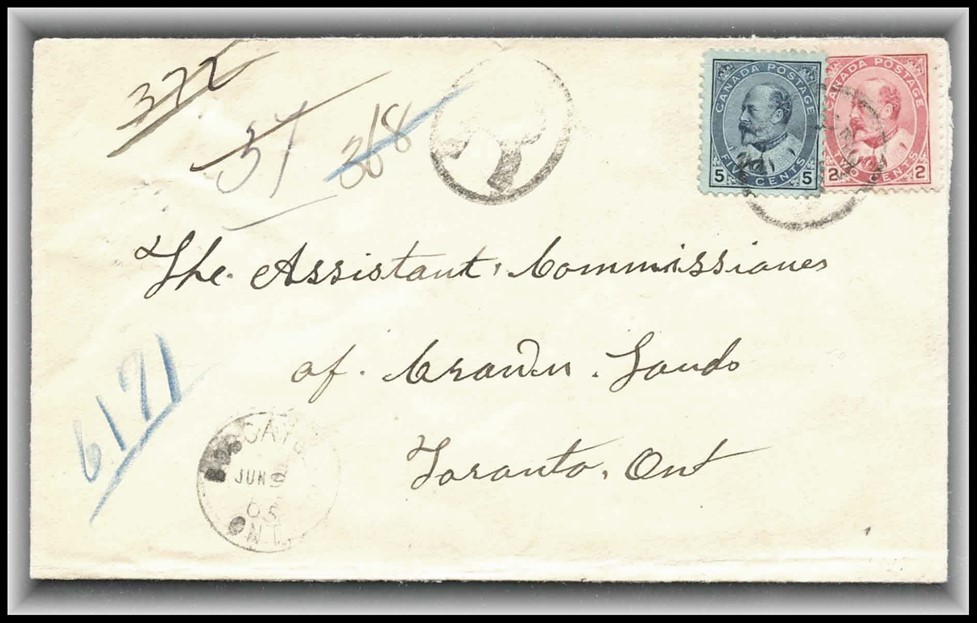 372
57 368
CANADA POSTAGE
FIVE CENTS
5 5
CANADA POSTAGE
CENTS
2 2
The Assistant Commissioner
of Crown Lands
Toronto, Ont
6171
JUN
05
ONT.